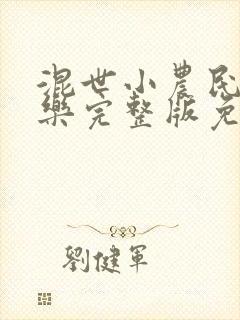 混世小農民
樂完整版免
劉健軍